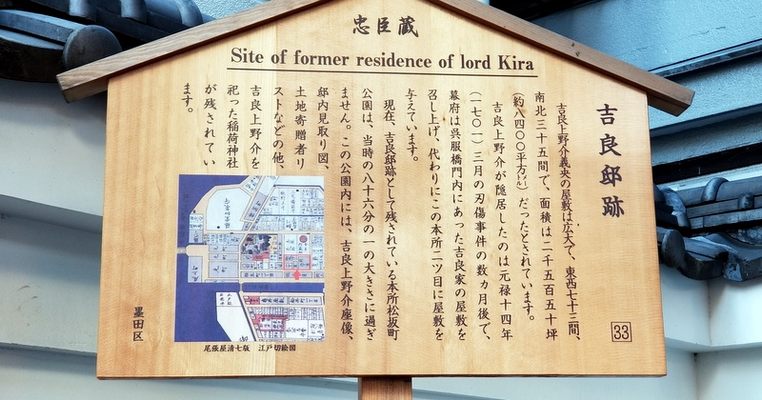 忠臣蔵
Site of former residence of lord Kira
吉良邸跡
吉良上野介義央の屋敷は広大で、東西七十三間、
南北三十五間で、面積は二千五百五十坪
(約八四〇〇平方㍍)だったとされています。
吉良上野介が隠居したのは元禄十四年
(一七〇一)三月の刃傷事件の数ヵ月後で、
幕府は呉服橋門内にあった吉良家の屋敷を
召し上げ、代わりにこの本所二ツ目に屋敷を
与えています。
現在、吉良邸跡として残されている本所松坂町
公園は、当時の八十六分の一の大きさに過ぎ
ません。この公園内には、吉良上野介座像、
邸内見取り図、
土地寄贈者リ
ストなどの他、
吉良上野介を
祀った稲荷神社
が残されてい
ます。
尾張屋清七版 江戸切絵図
墨田区
33